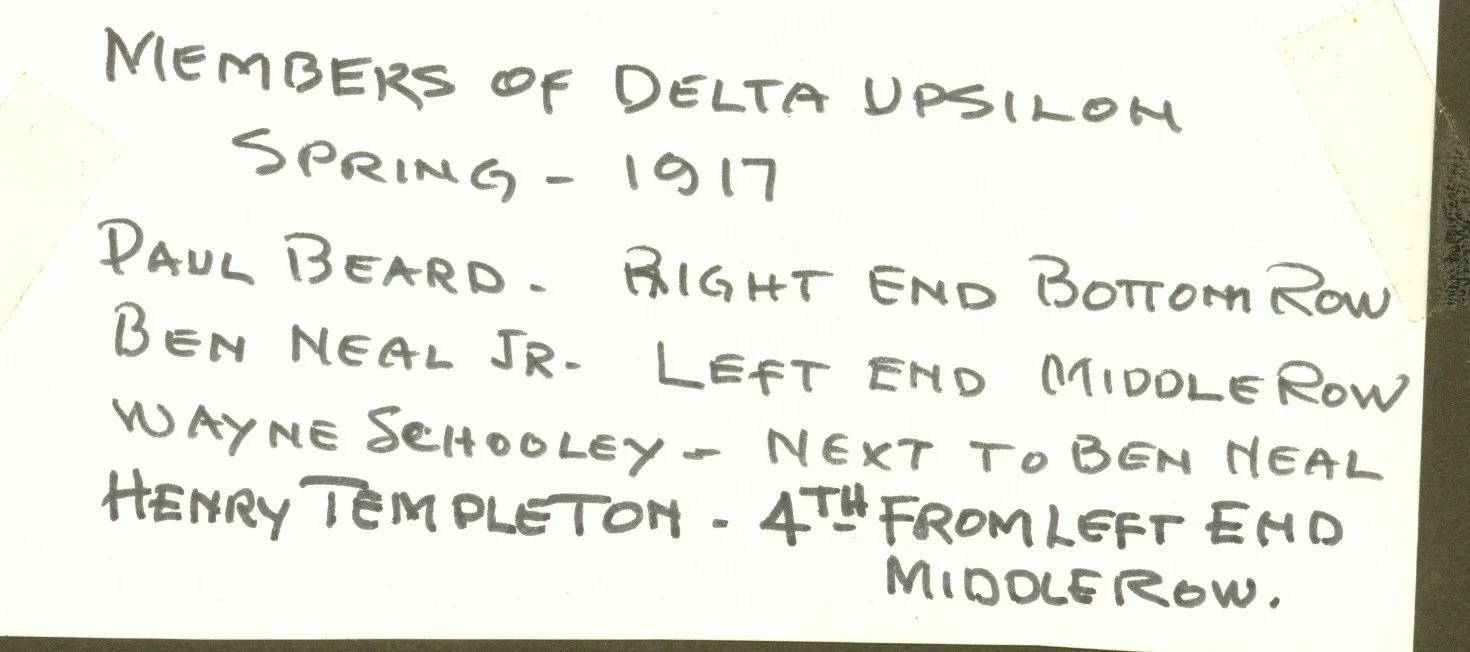 MEMBERS OF DELTA UPSILON
SPRING - 1917
PAUL BEARD. RIGHT END BOTTOM ROW
BEN NEAL JR. LEFT END MIDDLE ROW
WAYNE SCHOOLEY - NEXT TO BEN NEAL
HENRY TEMPLETON - 4TH FROM LEFT END
MIDDLE ROW.